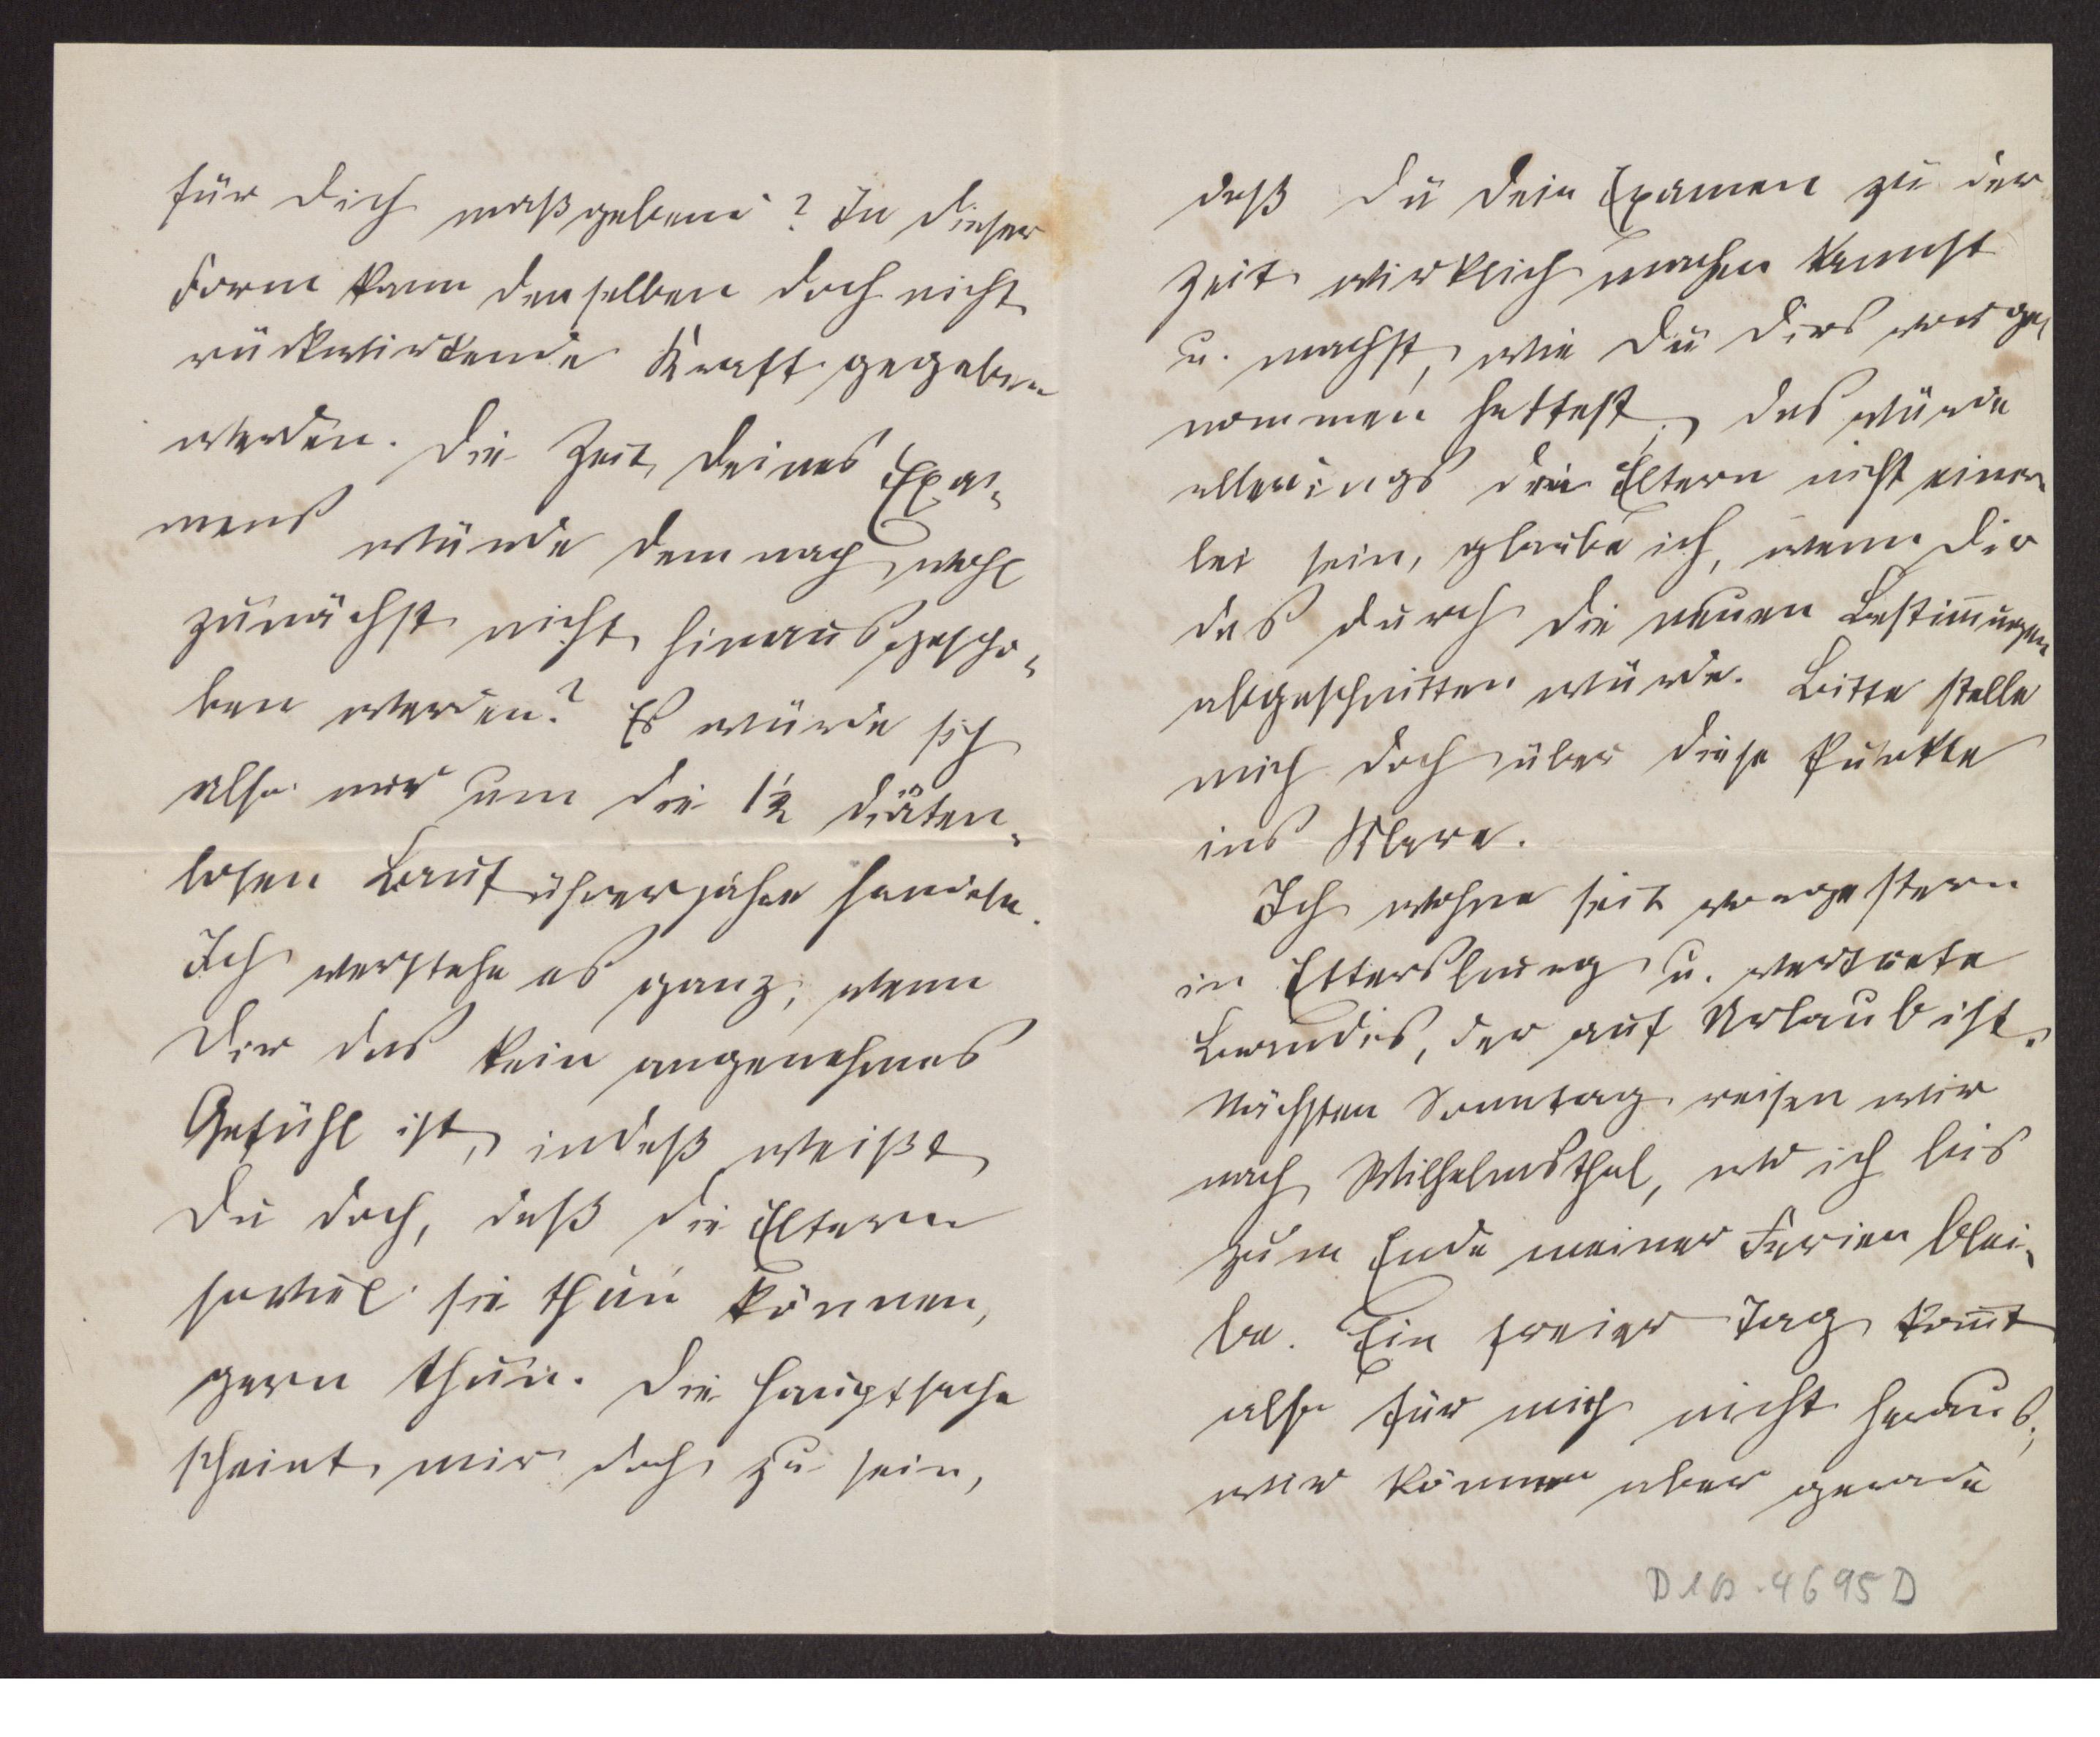 für Dich maßgebend? In dieser
Form kann denselben doch nicht
rückwirkende Kraft gegeben
werden. Die Zeit Deines Exa-
mens würde demnach wohl
zunächst nicht hinausgescho-
ben werden? Es würde sich
also nur um die 1½ diäten-
losen Bauführerjahre handeln.
Ich verstehe es ganz, wenn
Dir das kein angenehmes
Gefühl ist, indeß weißt
Du doch, daß die Eltern
soviel sie thun können,
gern thun. Die Hauptsache
scheint mir doch zu sein,
daß Du Dein Examen zu der
Zeit wirklich machen kannst
u. machst, wie Du Dirs vorge-
nommen hattest, das würde
allerdings den Eltern nicht einer-
lei sein, glaube ich, wenn Dir
das durch die neuen Bestim̄ungen
abgeschnitten würde. Bitte stelle
mich doch über diese Punkte
ins Klare.
Ich wohne seit vorgestern
in Ettersburg u. vertrete
Brandis, der auf Urlaub ist.
Nächsten Sonntag reisen wir
nach Wilhelmsthal, wo ich bis
zum Ende meiner Ferien blei-
be. Ein freier Tag kom̄t
also für mich nicht heraus,
wir können aber gerade
D 10.4695 D